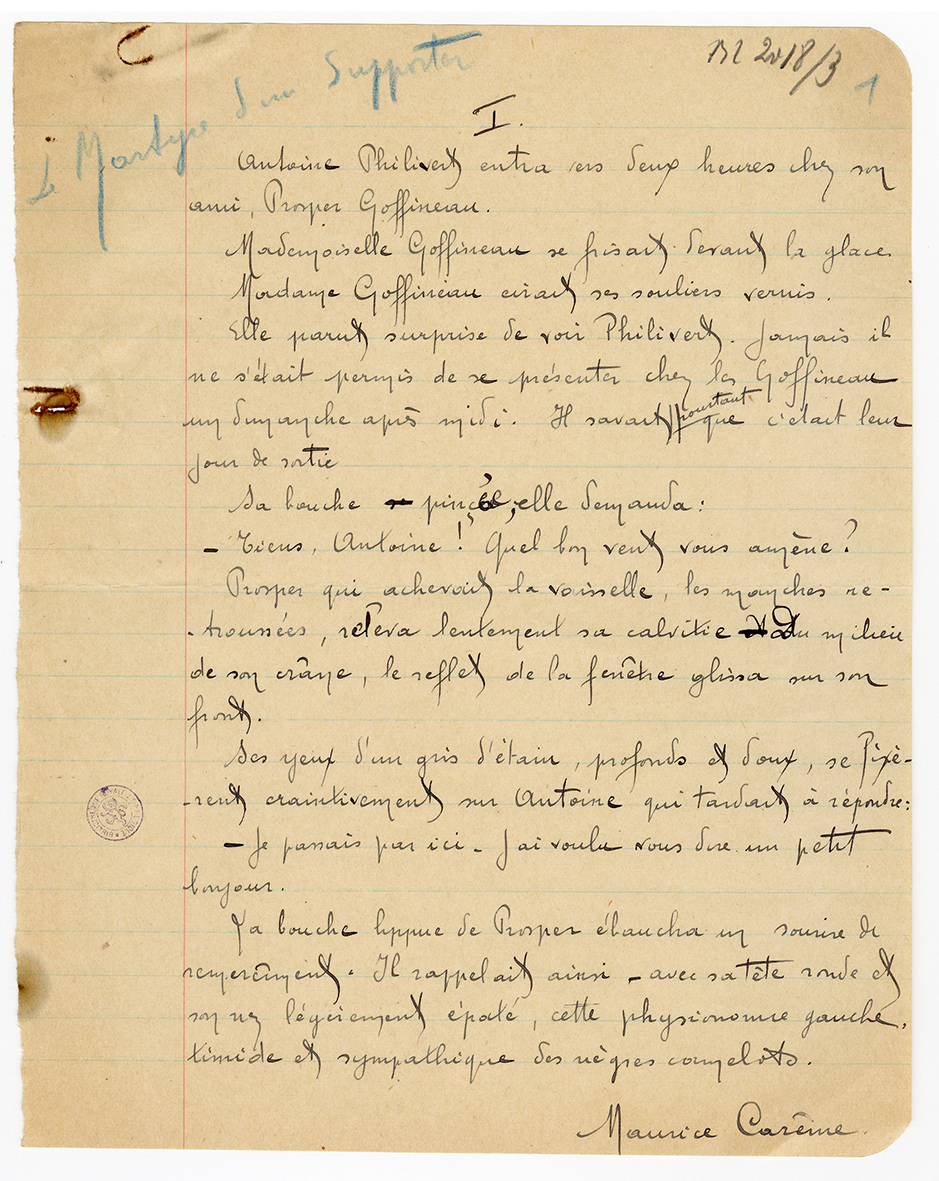 BR 2018/3
1
Le Martyre d'un Supporter
I.
Antoine Philivert entra vers deux heures chez son
ami, Prosper Goffineau.
Mademoiselle Goffineau se frisait devant la glace.
Madame Goffineau cirait ses souliers vernis.
Elle parut surprise de voir Philivert. Jamais il
ne s'était permis de se présenter chez les Goffineau
un dimanche après midi. Il savait pourtant que c'était leur
jour de sortie
Sa bouche se pincée, elle demanda :
– Tiens, Antoine ! Quel bon vent vous amène ?
Prosper qui achevait la vaisselle, les manches re-
-troussées, releva lentement sa calvitie Du milieu
de son crâne, le reflet de la fenêtre glissa sur son
front.
Ses yeux d'un gris d'étain, profonds et doux, se fixè-
-rent craintivement sur Antoine qui tardait à répondre :
– Je passais par ici – J'ai voulu vous dire un petit
bonjour.
La bouche lippue de Prosper ébaucha un sourire de
remercîment. Il rappelait ainsi – avec sa tête ronde et
son nez légèrement épaté, cette physionomie gauche,
timide et sympathique des nègres camelots.
Maurice Carême.